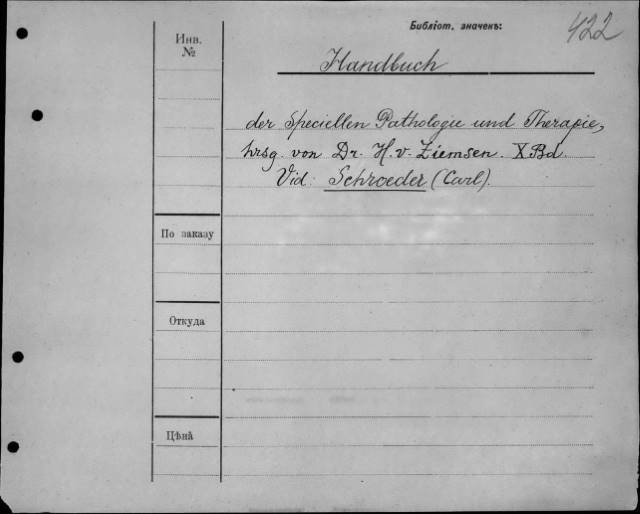 Библіот. значекъ:
422
Инв.
№
Handbuch
der speciellen Pathologie und Therapie,
hrsg. von Dr. H. v. Ziemsen. X Bd.
Vid: Schroeder (Carl).
По заказу
Откуда
Цѣна